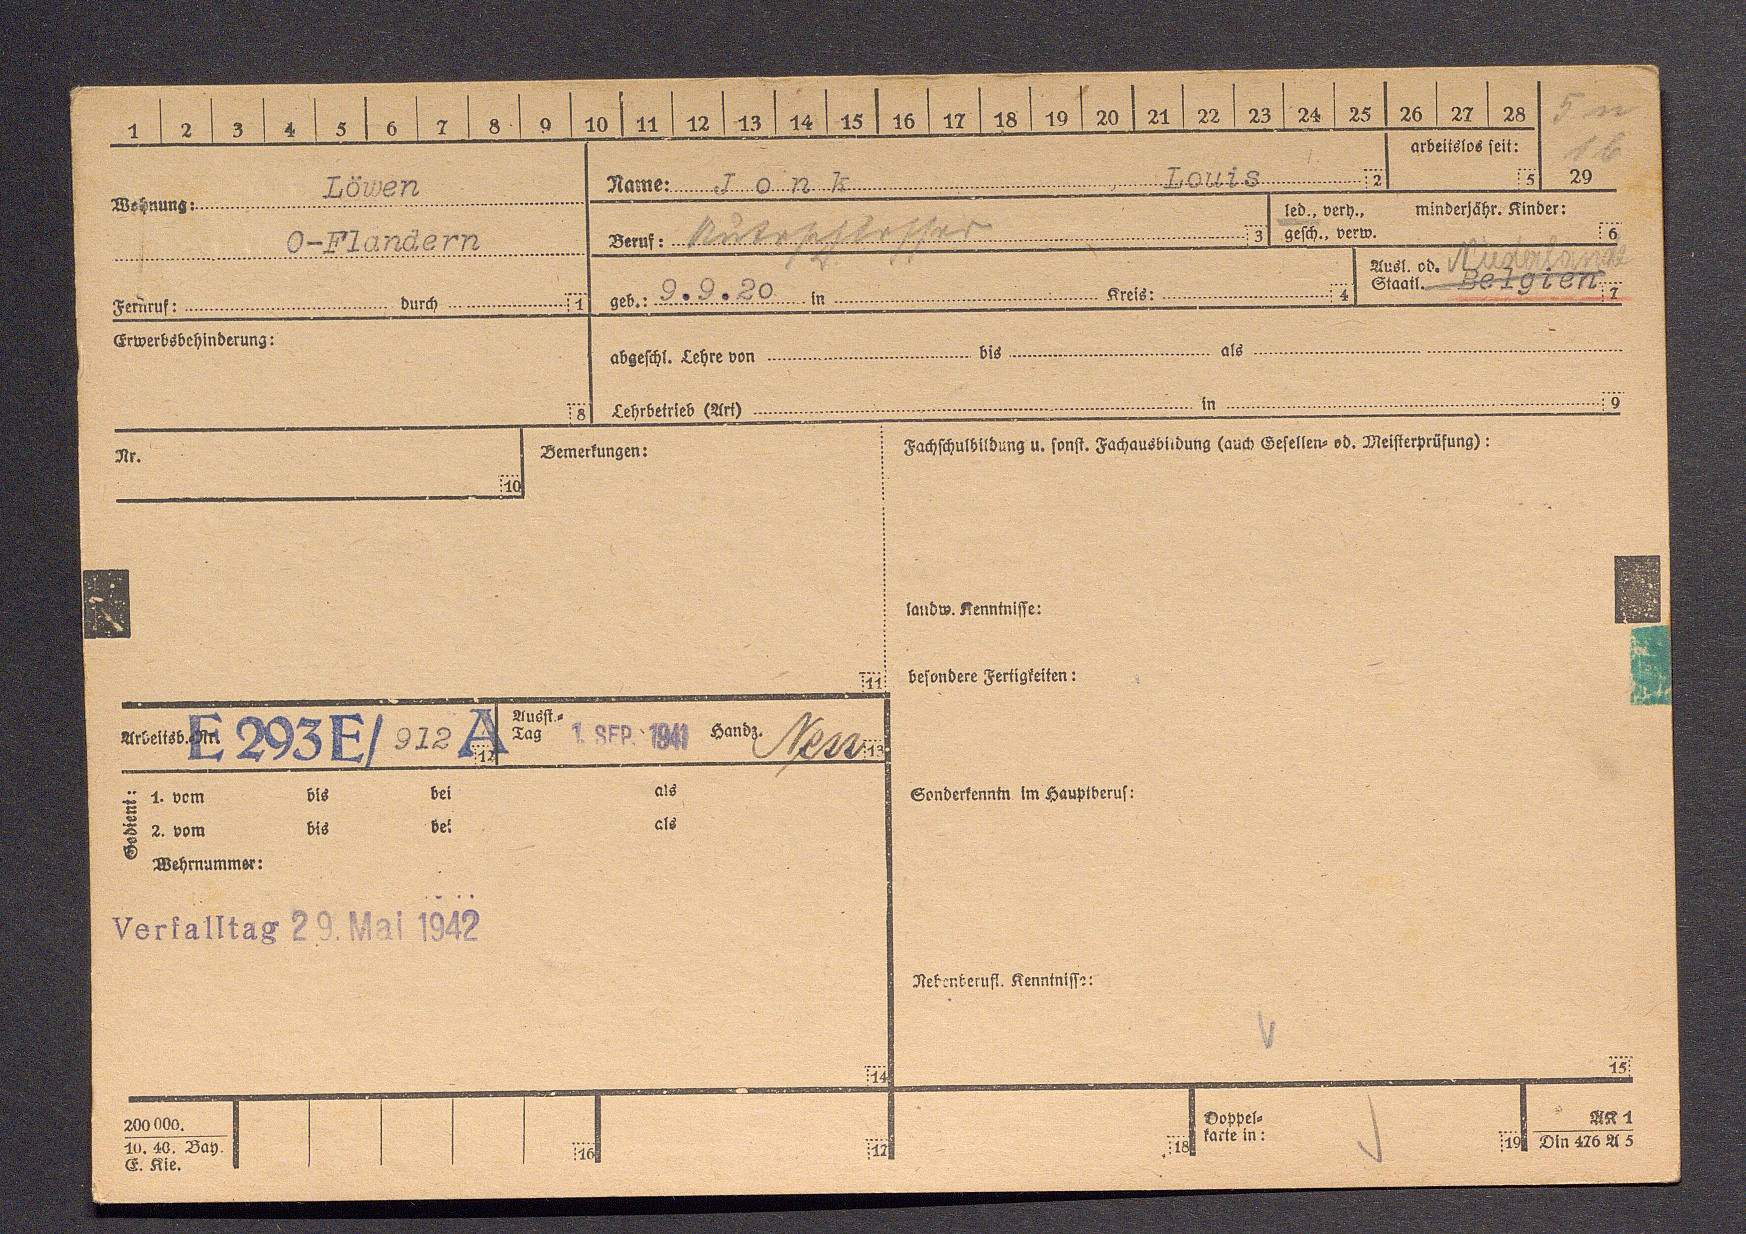 1 2 3 4 5 6 7 8 9 10 11 12 13 14 15 16 17 18 19 20 21 22 23 24 25 26 27 28
5 n
16
29
arbeitslos seit: 5
Wohnung: Löwen
O-Flandern
Fernruf: durch 1
Name: Jonk Louis 2
Beruf: Autoschlosser 3
led., verh., minderjähr. Kinder:
gesch., verw. 6
geb.: 9.9.20 in Kreis: 4
Ausl. od. Niederlande
Staatl. Belgien 7
Erwerbsbehinderung:
8
abgeschl. Lehre von bis als
Lehrbetrieb (Art) in 9
Nr.
10
Bemerkungen:
11
Fachschulbildung u. sonst. Fachausbildung (auch Gesellen- od. Meisterprüfung):
landw. Kenntnisse:
besondere Fertigkeiten:
Sonderkenntn. im Hauptberuf:
Nebenberufl. Kenntnisse:
15
Arbeitsb.-Nr. E 293 E/ 912 A 12
Ausst.-
Tag 1. SEP. 1941 Handz. 13
Gedient:
1. vom bis bei als
2. vom bis bei als
Wehrnummer:
Verfalltag 29. Mai 1942
14
200 000.
10. 40. Bay.
E. Kie.
16
17
18
Doppel-
karte in: 19
AK 1
Din 476 A 5